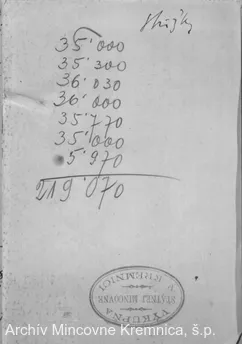 35'000
35'300
36'030
36'000
35'770
35'000
5'970
219'070
VÝKUPŇA
ŠTÁTNEJ MINCOVNE
V KREMNICI
Archív Mincovne Kremnica, š.p.